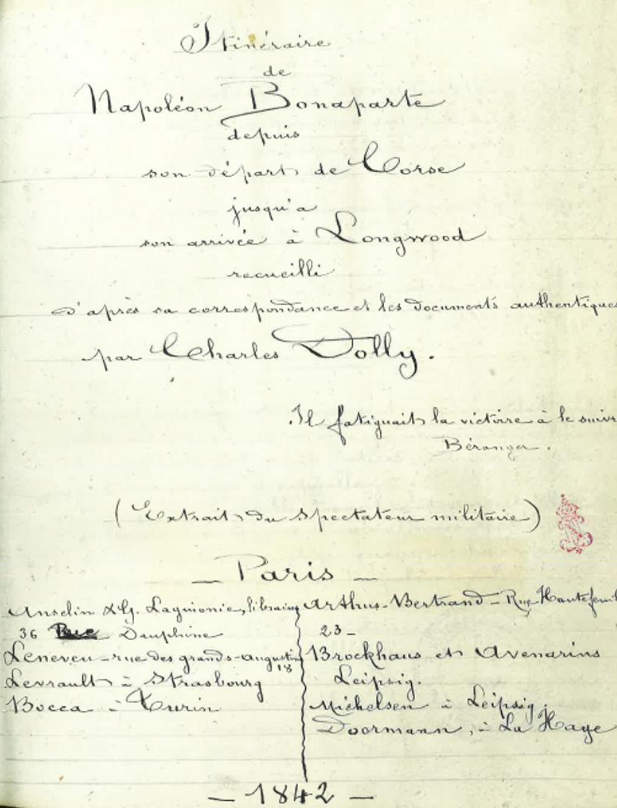 Itinéraire
de
Napoléon Bonaparte
depuis
son départ de Corse
jusqu'a
son arrivée à Longwood
recueilli
d'après sa correspondance et les documents authentique
par Charles Dolly.
Il fatiguait la victoire à le suivr
Béranger.
(Extrait du spectateur militaire)
— Paris —
Anselin & G. Laguionie, libraires
36 Rue Dauphine
Leneveu - rue des grands-augustins
18
Levrault à Strasbourg
Bocca à Turin
Arthus-Bertrand - Rue Hautefeuil
23 -
Brockhaus et Avenarius
Leipsig.
Michelsen à Leipsig.
Doormann, à La Haye
— 1842 —